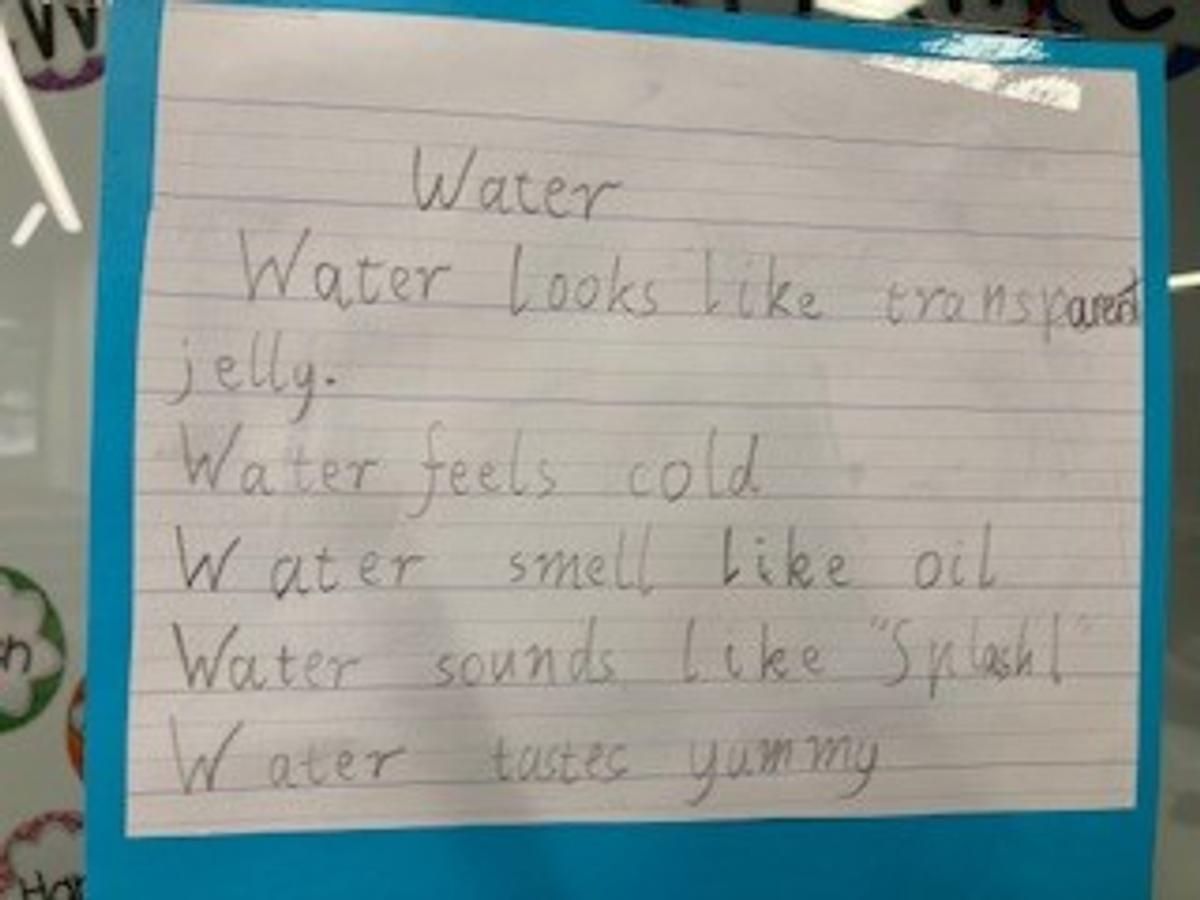 Water
Water looks like transparent
jelly.
Water feels cold
Water smell like oil
Water sounds like "Splash!"
Water tastes yummy